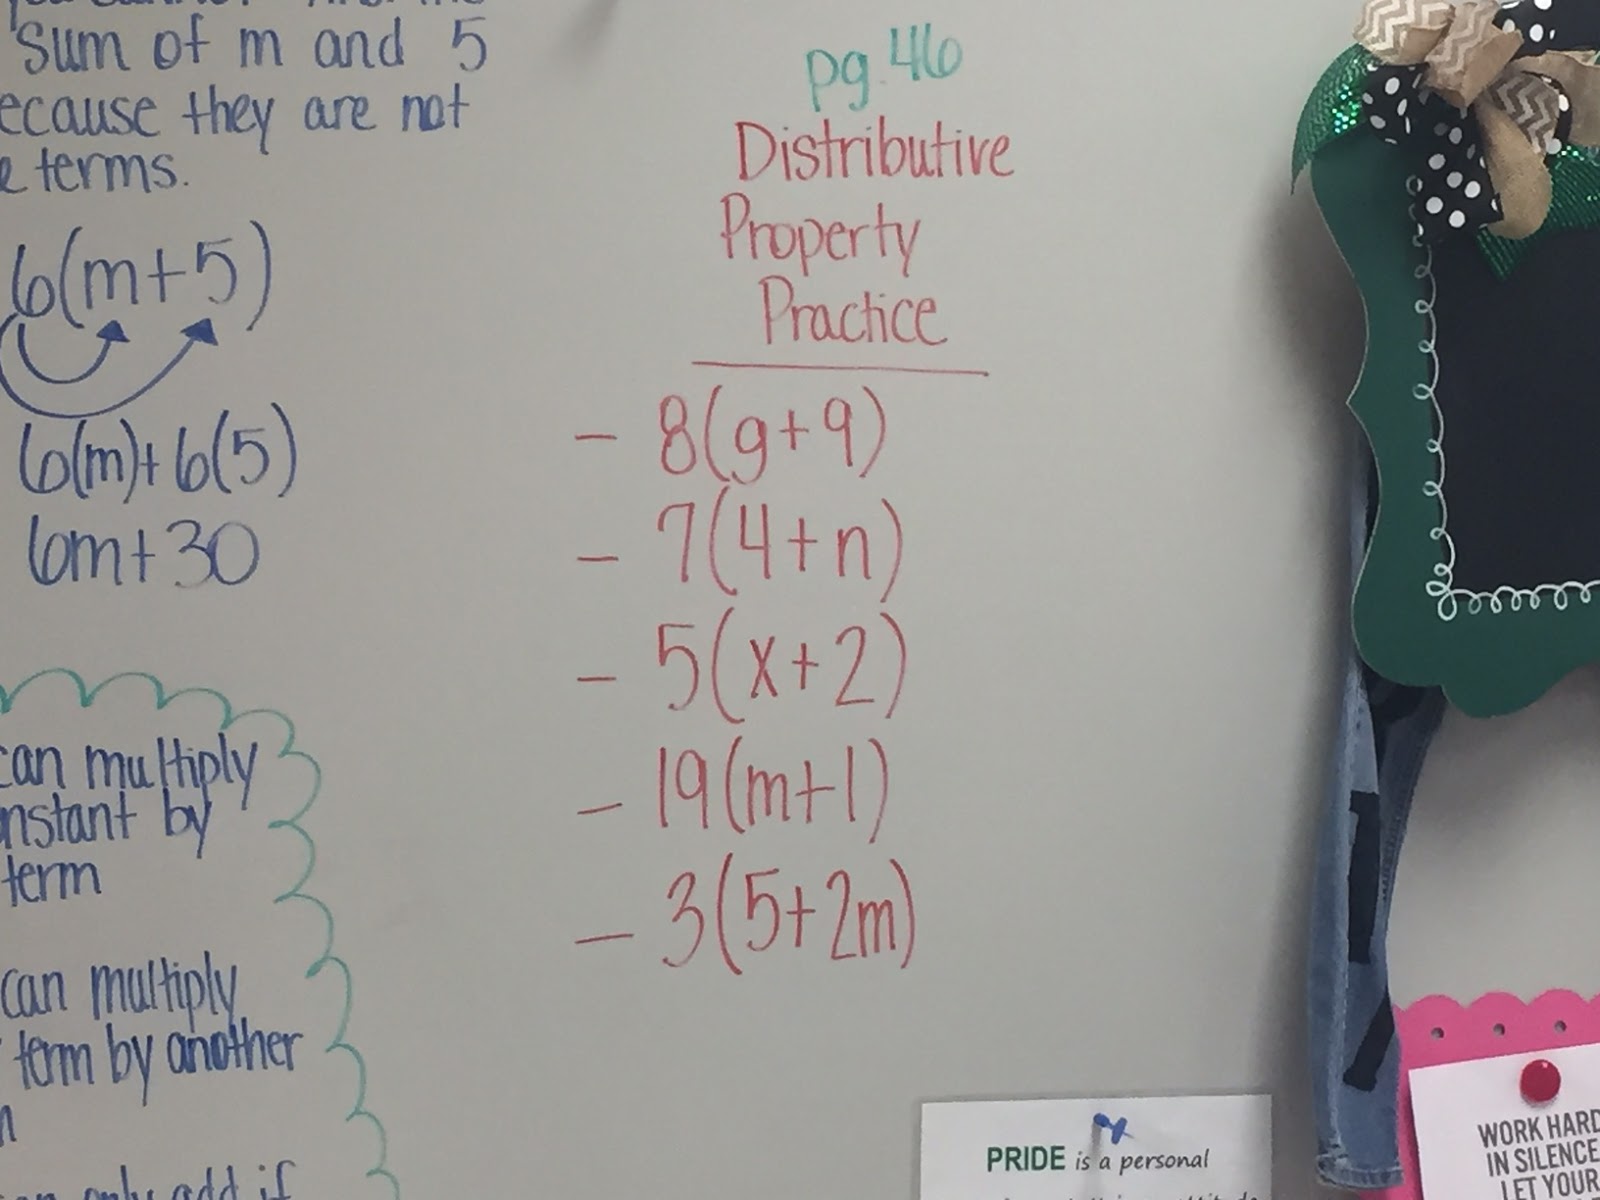 Sum of m and 5
they are not
terms.
6(m+5)
6(m)+6(5)
6m+30
can multiply
by
term
can multiply
term by another
only add if
pg.46
Distributive
Property
Practice
- 8(g+9)
- 7(4+n)
- 5(x+2)
- 19(m+1)
- 3(5+2m)
PRIDE is a personal
WORK HARD
IN SILENCE
LET YOUR